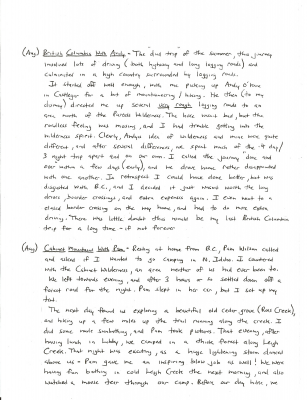 (Aug) British Columbia With Andy - The dud trip of the summer, this journey
involved lots of driving (both highway and long logging roads) and
culminated in a high country surrounded by logging roads.
It started off well enough, with me picking up Andy
in Castlegar for a bit of mountaineering / hiking. He then (to my
dismay) directed me up several very rough logging roads to an
area north of the Purcell Wilderness. The hike wasn't bad, but the
roadless feeling was missing, and I had trouble getting into the
wilderness spirit. Clearly, Andy's idea of wilderness and mine were quite
different, and after several differences, we spent much of the 4 day/
3 night trip apart and on our own. I called the journey done and
over within a few days (early), and we drove home rather disappointed
with one another. In retrospect I could have done better, but was
disgusted with B.C., and I decided it just wasn't worth the long
drives, border crossings, and extra expenses again. I even went to a
closed border crossing on the way home, and had to do more extra
driving. There was little doubt this would be my last British Columbia
trip for a long time - if not forever
(Aug) Cabinet Mountains With Pam - Resting at home from B.C., Pam William called
and asked if I wanted to go camping in N. Idaho. I countered
with the Cabinet Wilderness, an area neither of us had ever been to.
We left towards evening, and after 3 hours or so settled down off a
forest road for the night. Pam slept in her car, but I set up my
tent.
The next day found us exploring a beautiful old cedar grove (Ross Creek),
and hiking up a few miles up the trail running along the creek. I
did some nude sunbathing, and Pam took pictures. That evening, after
having lunch in Libby, we camped in a thick forest along Leigh
Creek. That night was exciting, as a huge lightning storm danced
above us - Pam gave me an inspiring blow job as well! We were
having fun bathing in cold Leigh Creek the next morning, and also
watched a moose steer through our camp. Before our day hike, we